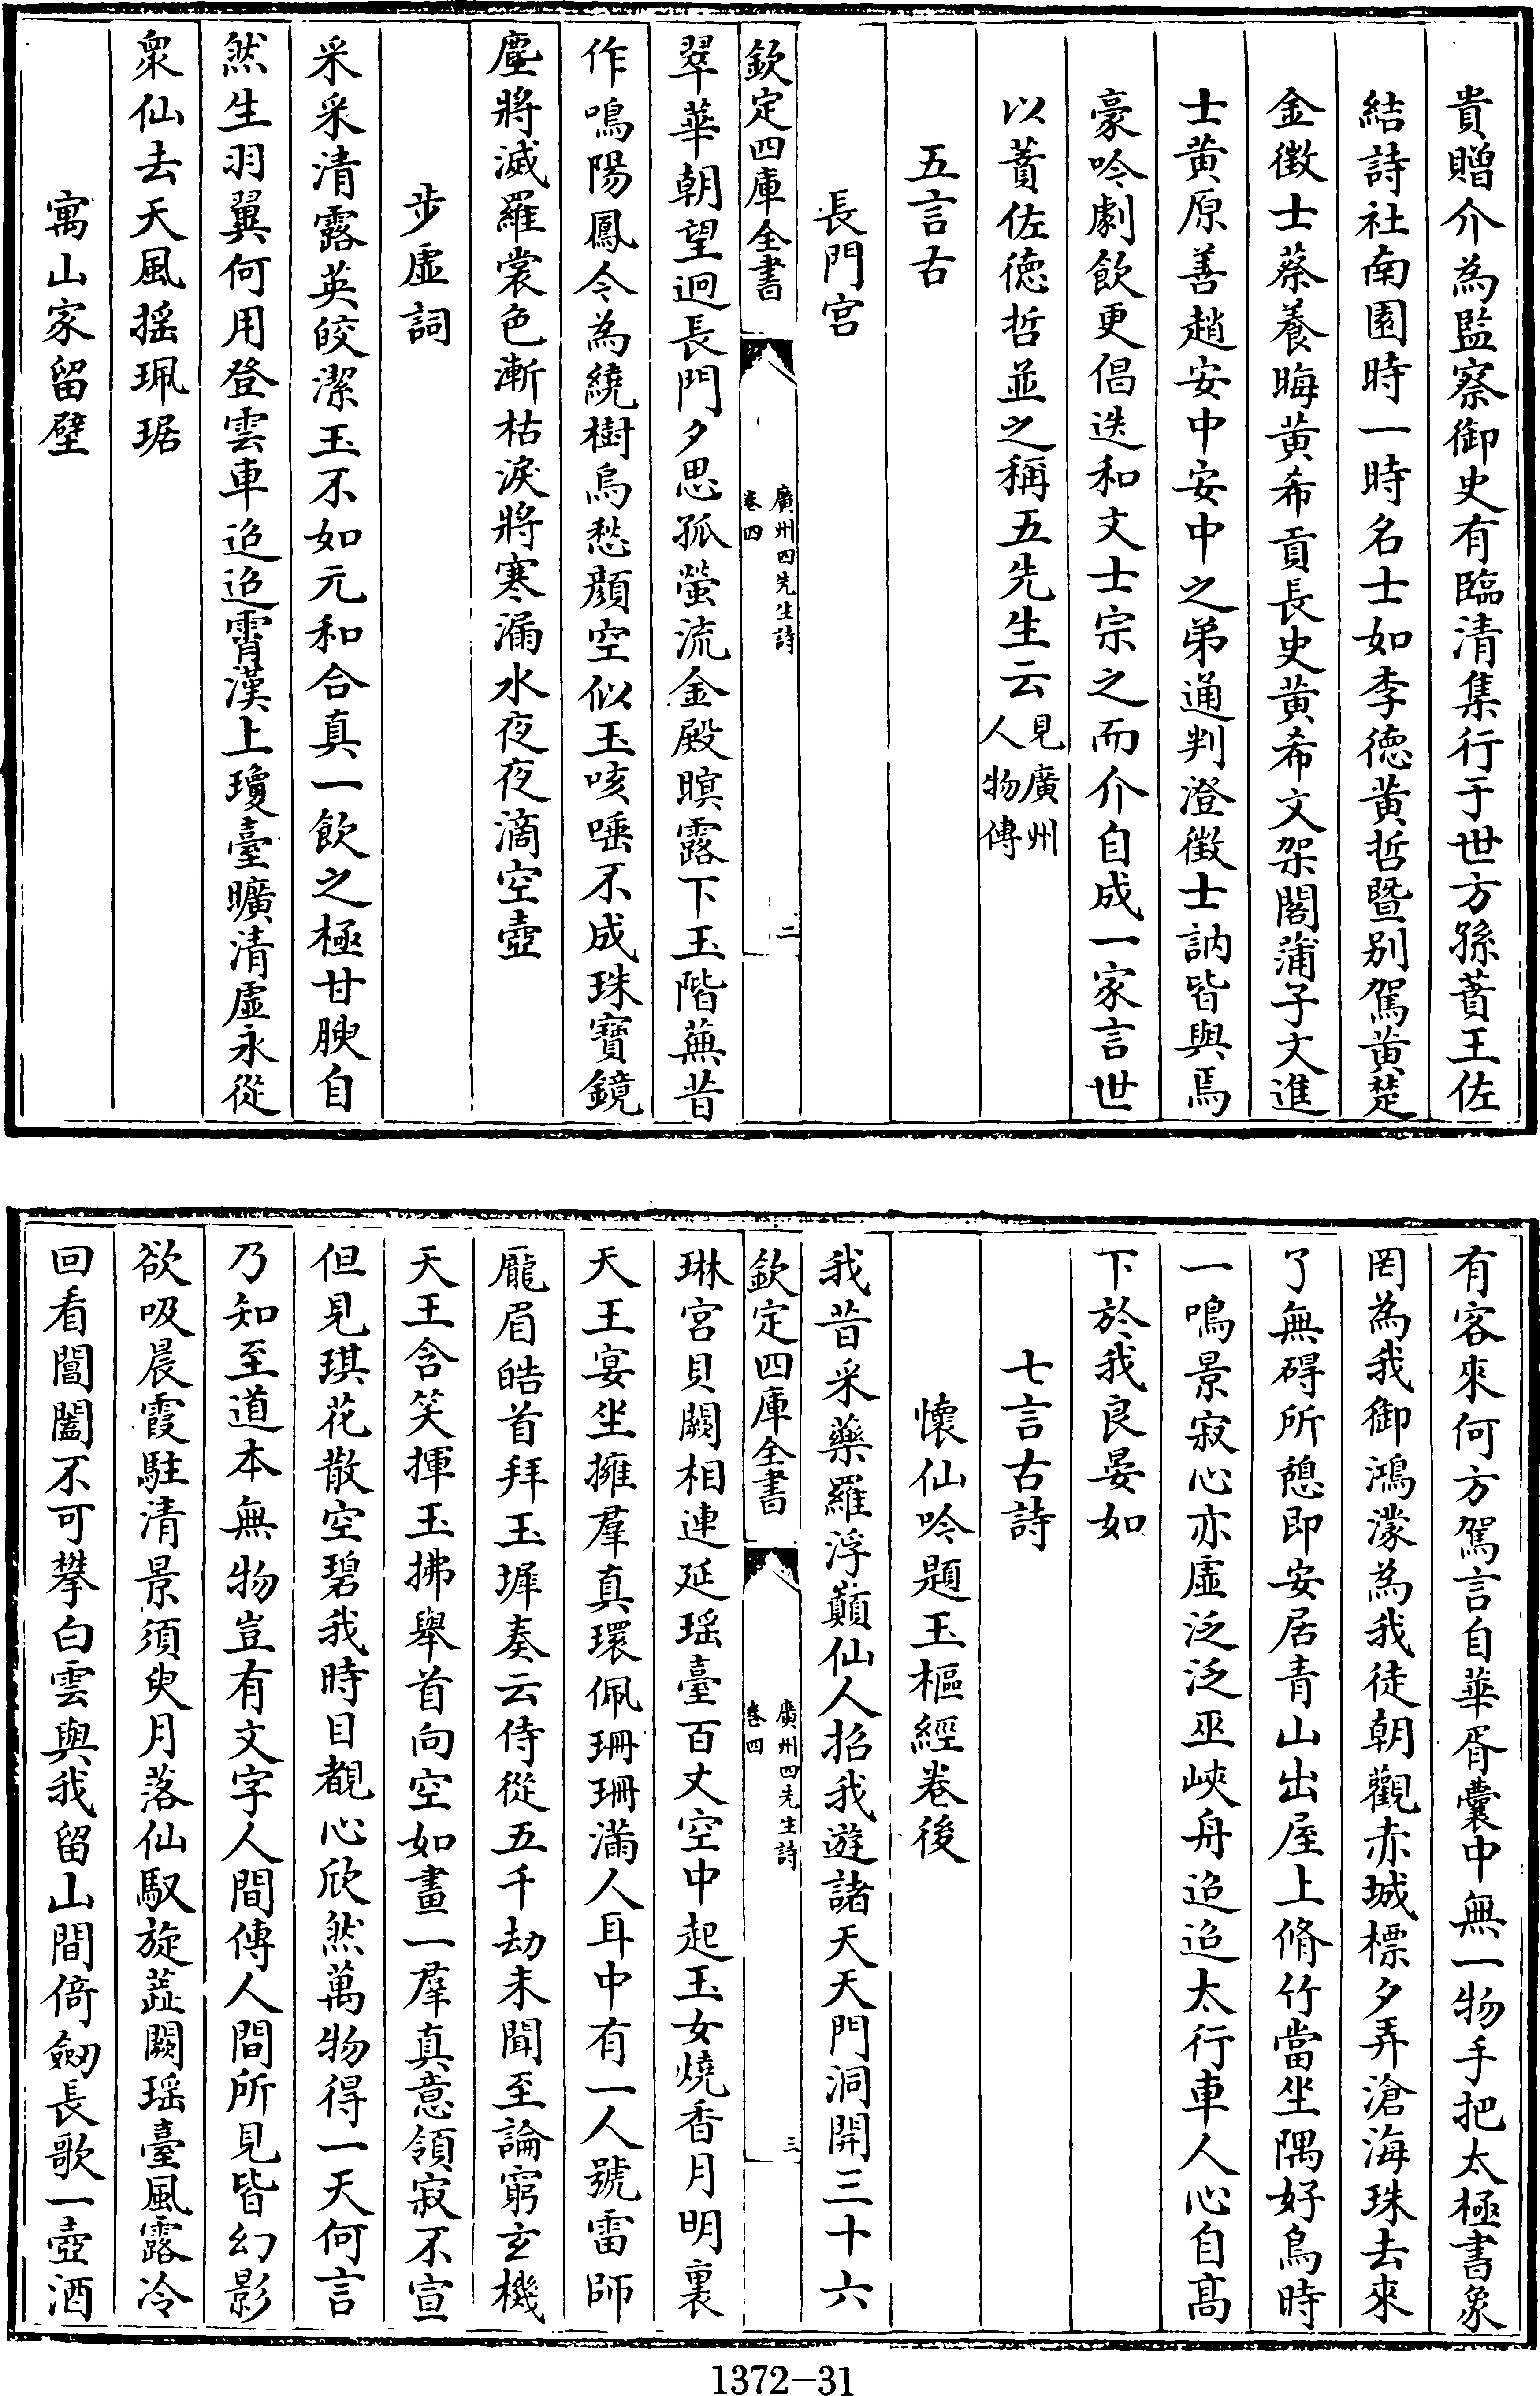 貴贈介為監察御史有臨清集行于世方孫蕡王佐
結詩社南園時一時名士如李徳黄哲暨别駕黄楚
金徴士蔡養晦黄希貢長史黄希文架閣蒲子文進
士黄原善趙安中安中之弟通判澄徴士訥皆與焉
豪吟劇飲更倡迭和文士宗之而介自成一家言世
以蕡佐徳哲並之稱五先生云見廣州人物傳
五言古
長門宫
欽定四庫全書
廣州四先生詩
卷四
二
翠華朝望迥長門夕思孤螢流金殿暝露下玉階蕪昔
作鳴陽鳳今為繞樹烏愁顔空似玉咳唾不成珠寶鏡
塵將滅羅裳色漸枯淚將寒漏水夜夜滴空壺
步虚詞
采采清露英皎潔玉不如元和合真一飲之極甘腴自
然生羽翼何用登雲車迢迢霄漢上瓊臺曠清虚永從
衆仙去天風摇珮琚
寓山家留壁
有客來何方駕言自華胥囊中無一物手把太極書象
罔為我御鴻濛為我徒朝觀赤城標夕弄滄海珠去來
了無碍所憩即安居青山出屋上脩竹當坐隅好鳥時
一鳴景寂心亦虚泛泛巫峽舟迢迢太行車人心自髙
下於我良晏如
七言古詩
懷仙吟題玉樞經卷後
我昔采藥羅浮巔仙人招我遊諸天天門洞開三十六
欽定四庫全書
廣州四先生詩
卷四
三
琳宫貝闕相連延瑶臺百丈空中起玉女燒香月明裏
天王宴坐擁羣真環佩珊珊滿人耳中有一人號雷師
龎眉皓首拜玉墀奏云侍從五千劫未聞至論窮玄機
天王含笑揮玉拂舉首向空如畫一羣真意領寂不宣
但見琪花散空碧我時目覩心欣然萬物得一天何言
乃知至道本無物豈有文字人間傳人間所見皆幻影
欲吸晨霞駐清景須臾月落仙馭旋蘂闕瑶臺風露冷
回看閶闔不可攀白雲與我留山間倚劒長歌一壺酒
1372-31